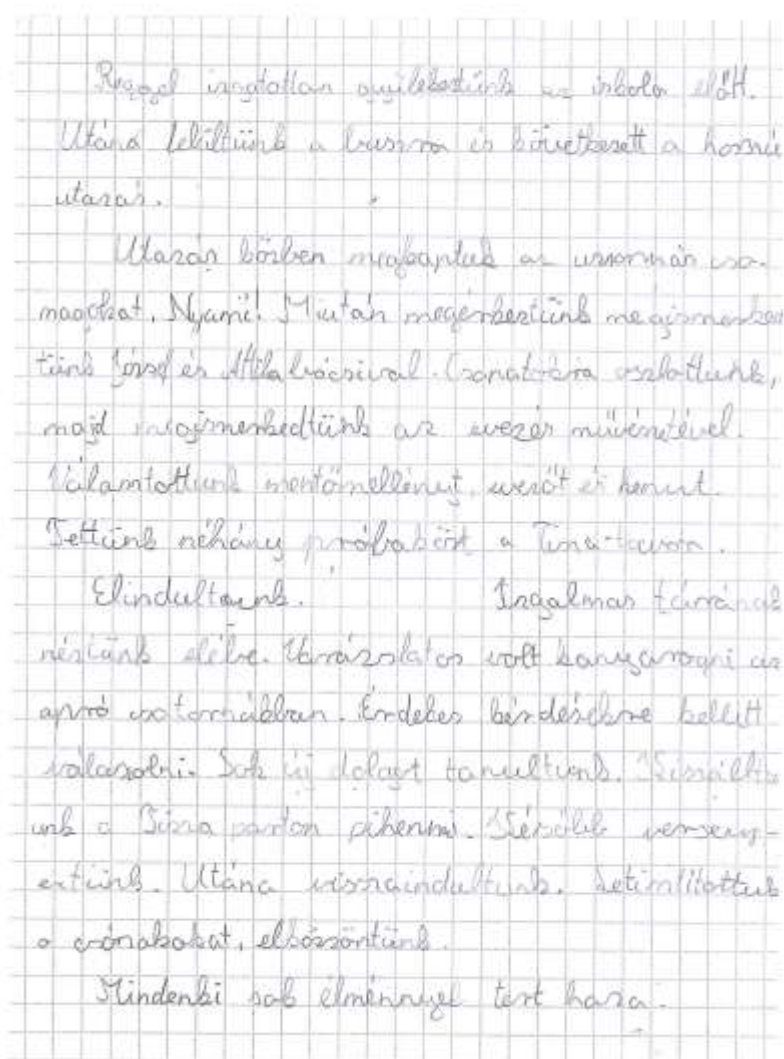 Reggel izgatottan gyülekeztünk az iskola előtt.
Utána felültünk a buszra és következett a hosszú
utazás.
Utazás közben megkaptuk az uzsonnás cso-
magokat. Nyami! Miután megérkeztünk megismerked
tünk József és Attila bácsival. Csapatokra oszlottunk,
majd megismerkedtünk az evezés művészetével.
Válamtottunk mentőmellényt, evezőt és kenut.
Tettünk néhány próbakört a Tisza-tavon.
Elindultunk. Izgalmas túrának
néztünk elébe. Varázslatos volt kanyarogni az
apró csatornákban. Érdekes kérdésekre kellett
válaszolni. Sok új dolgot tanultunk. Kiszállt
unk a Tisza parton pihenni. Később verseny-
eztünk. Utána visszaindultunk. Letisztítottuk
a csónakokat, elköszöntünk.
Mindenki sok élménnyel tért haza.